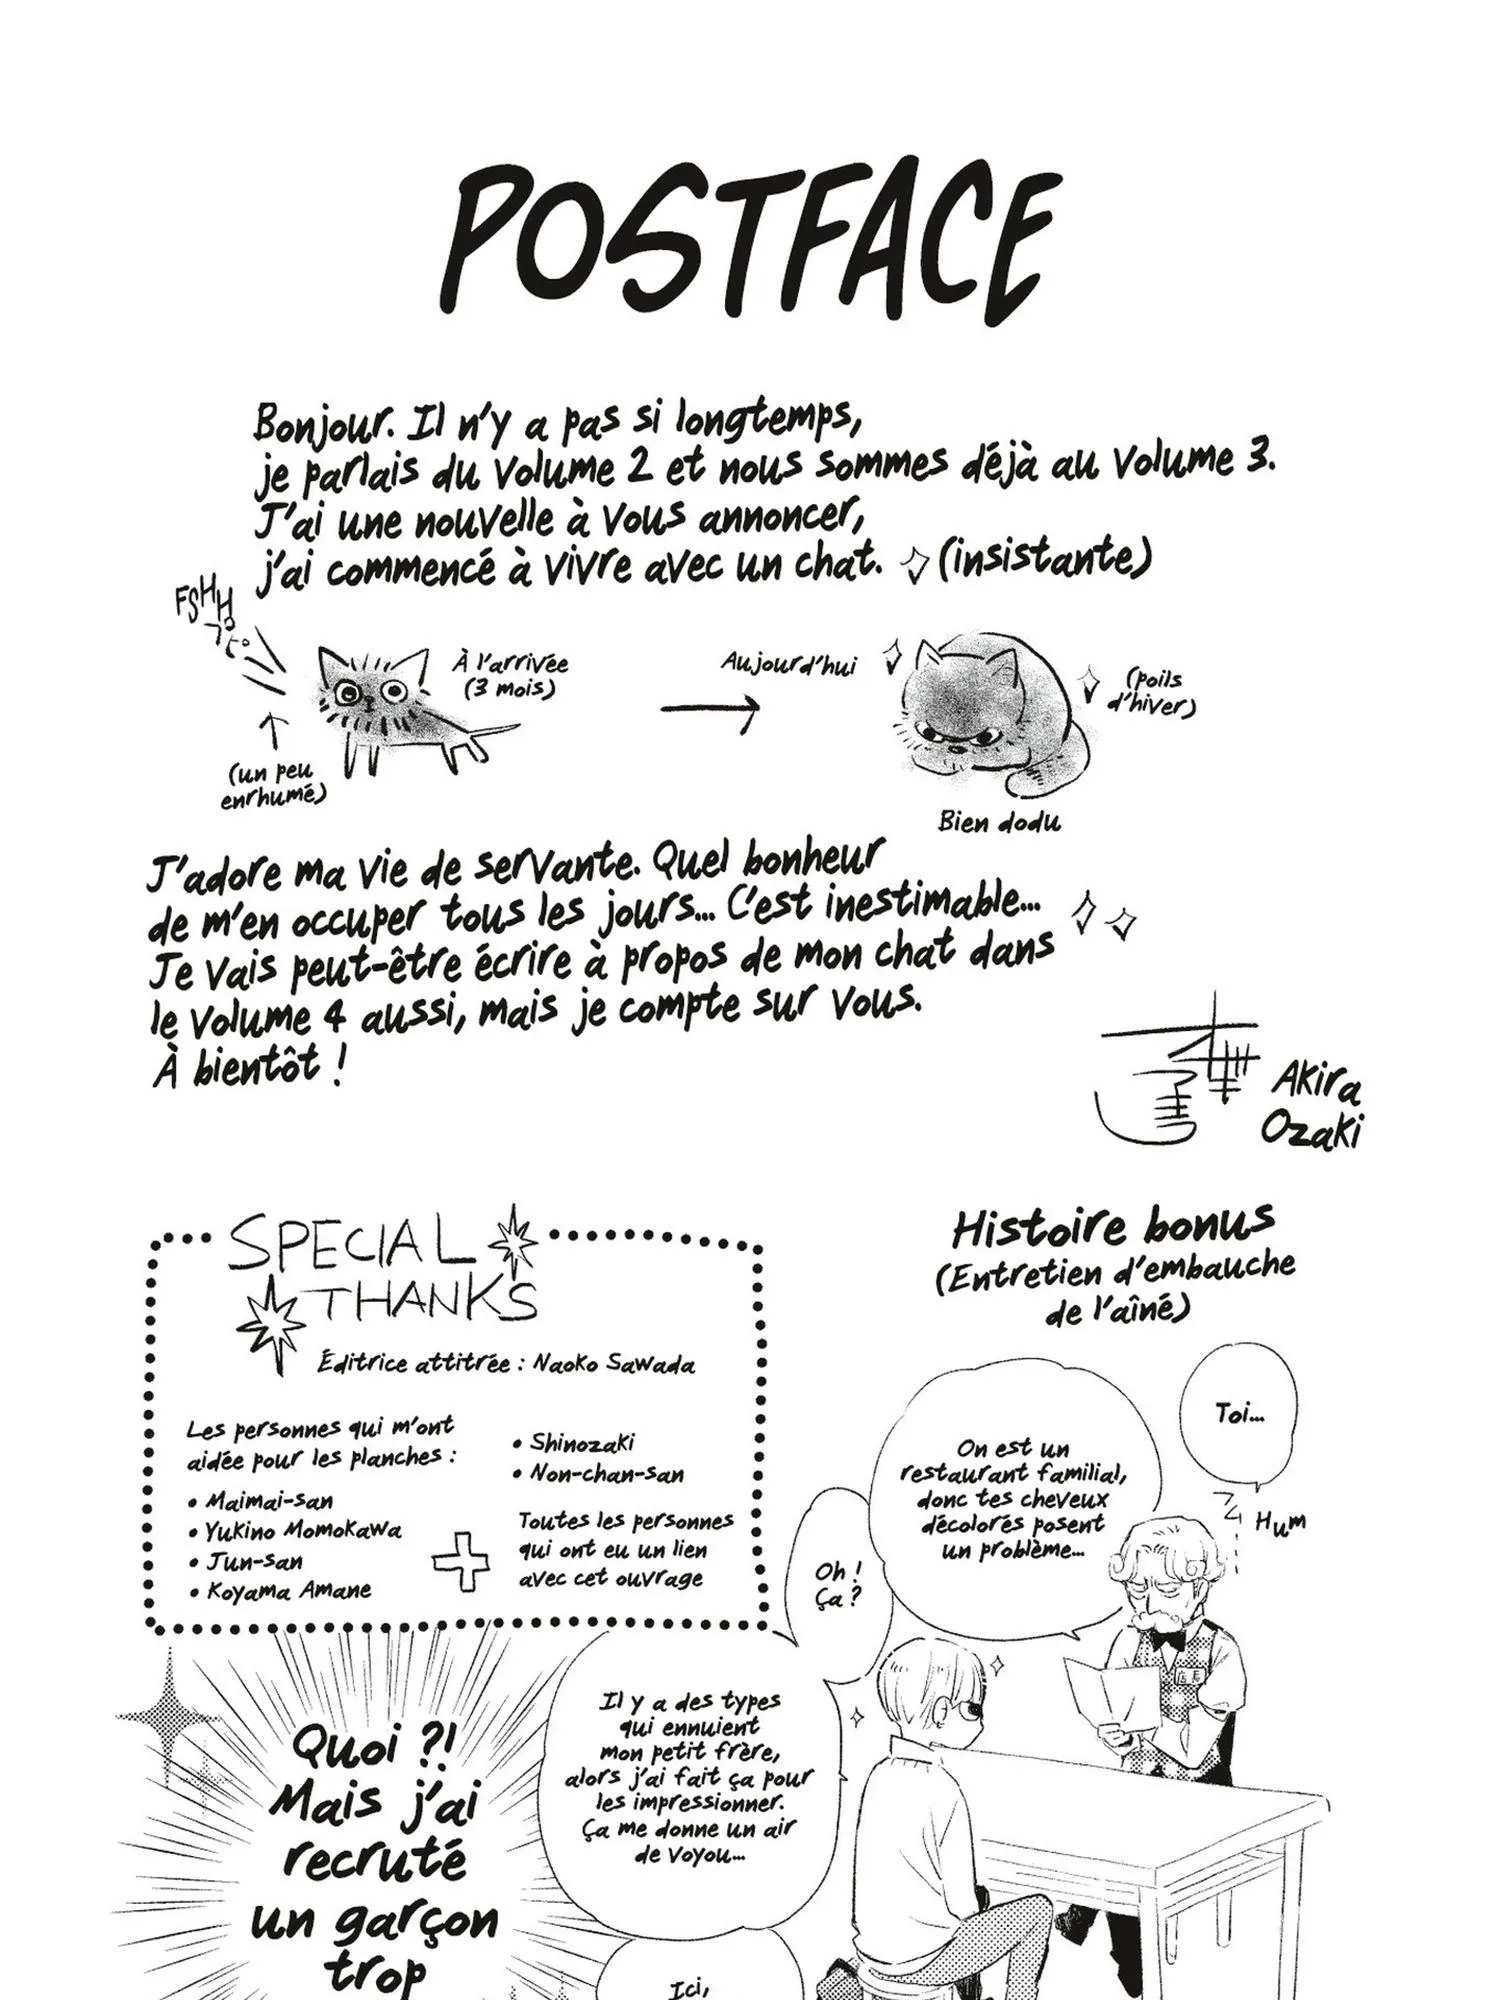 POSTFACE
Bonjour. Il n'y a pas si longtemps,
je parlais du volume 2 et nous sommes déjà au volume 3.
J'ai une nouvelle à vous annoncer,
j'ai commencé à vivre avec un chat. (insistante)
FSHH
À l'arrivée
(3 mois)
(un peu
enrhumé)
Aujourd'hui
(poils
d'hiver)
Bien dodu
J'adore ma vie de servante. Quel bonheur
de m'en occuper tous les jours... C'est inestimable...
Je vais peut-être écrire à propos de mon chat dans
le volume 4 aussi, mais je compte sur vous.
À bientôt !
Akira
Ozaki
SPECIAL
THANKS
Éditrice attitrée : Naoko Sawada
Les personnes qui m'ont
aidée pour les planches :
• Maimai-san
• Yukino Momokawa
• Jun-san
• Koyama Amane
• Shinozaki
• Non-chan-san
Toutes les personnes
qui ont eu un lien
avec cet ouvrage
Histoire bonus
(Entretien d'embauche
de l'aîné)
Toi...
Hum
On est un
restaurant familial,
donc tes cheveux
décolorés posent
un problème...
店長
Oh !
Ça ?
Il y a des types
qui ennuient
mon petit frère,
alors j'ai fait ça pour
les impressionner.
Ça me donne un air
de voyou...
Quoi ?!
Mais j'ai
recruté
un garçon
trop
Ici,